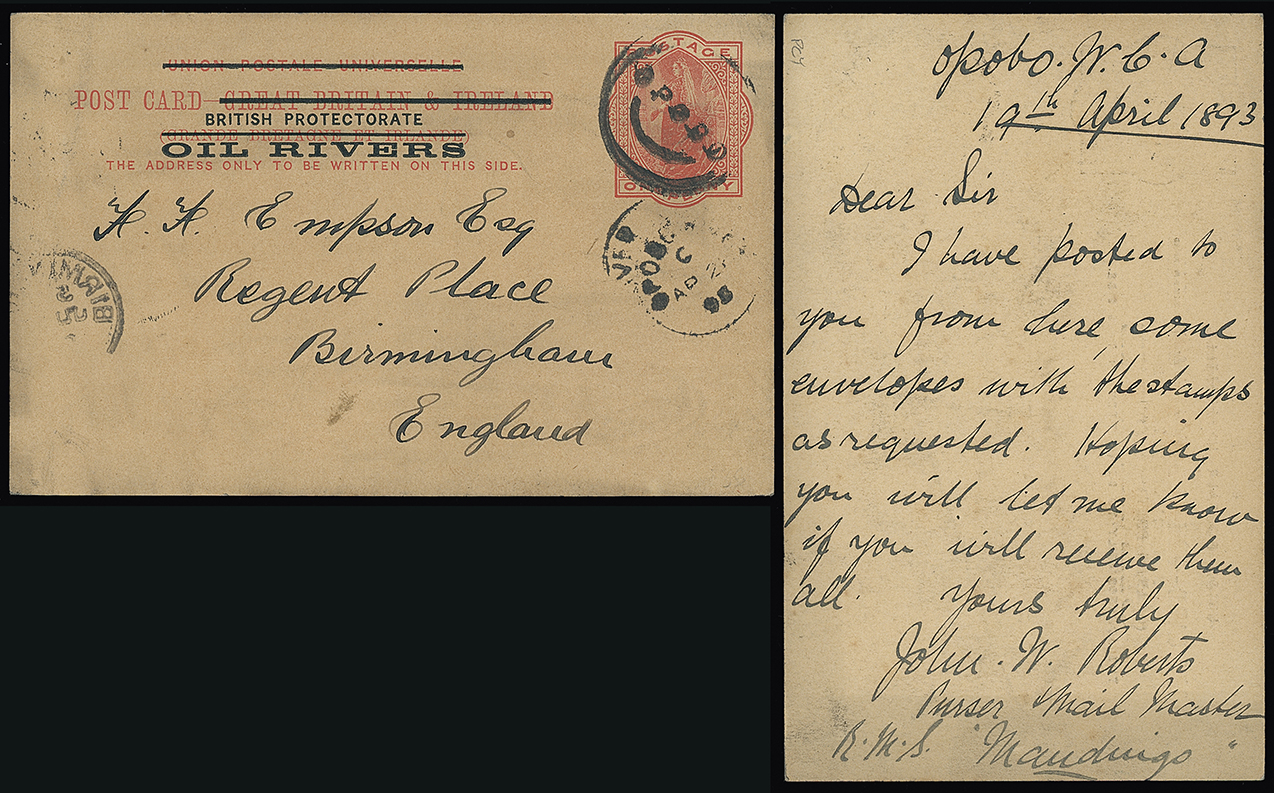 UNION POSTALE UNIVERSELLE
POST CARD-GREAT BRITAIN & IRELAND
BRITISH PROTECTORATE
(GRANDE BRETAGNE ET IRLANDE)
OIL RIVERS
THE ADDRESS ONLY TO BE WRITTEN ON THIS SIDE.
POSTAGE
ONE PENNY
H. H. Empson Esq
Regent Place
Birmingham
England
OPOBO
C
AP 21
93
Opobo. W. C. A
19th April 1893
Dear Sir
I have posted to
you from here, some
envelopes with the stamps
as requested. Hoping
you will let me know
if you will receive them
all. Yours truly
John. W. Roberts
Purser & Mail Master
R. M. S. "Mandingo"